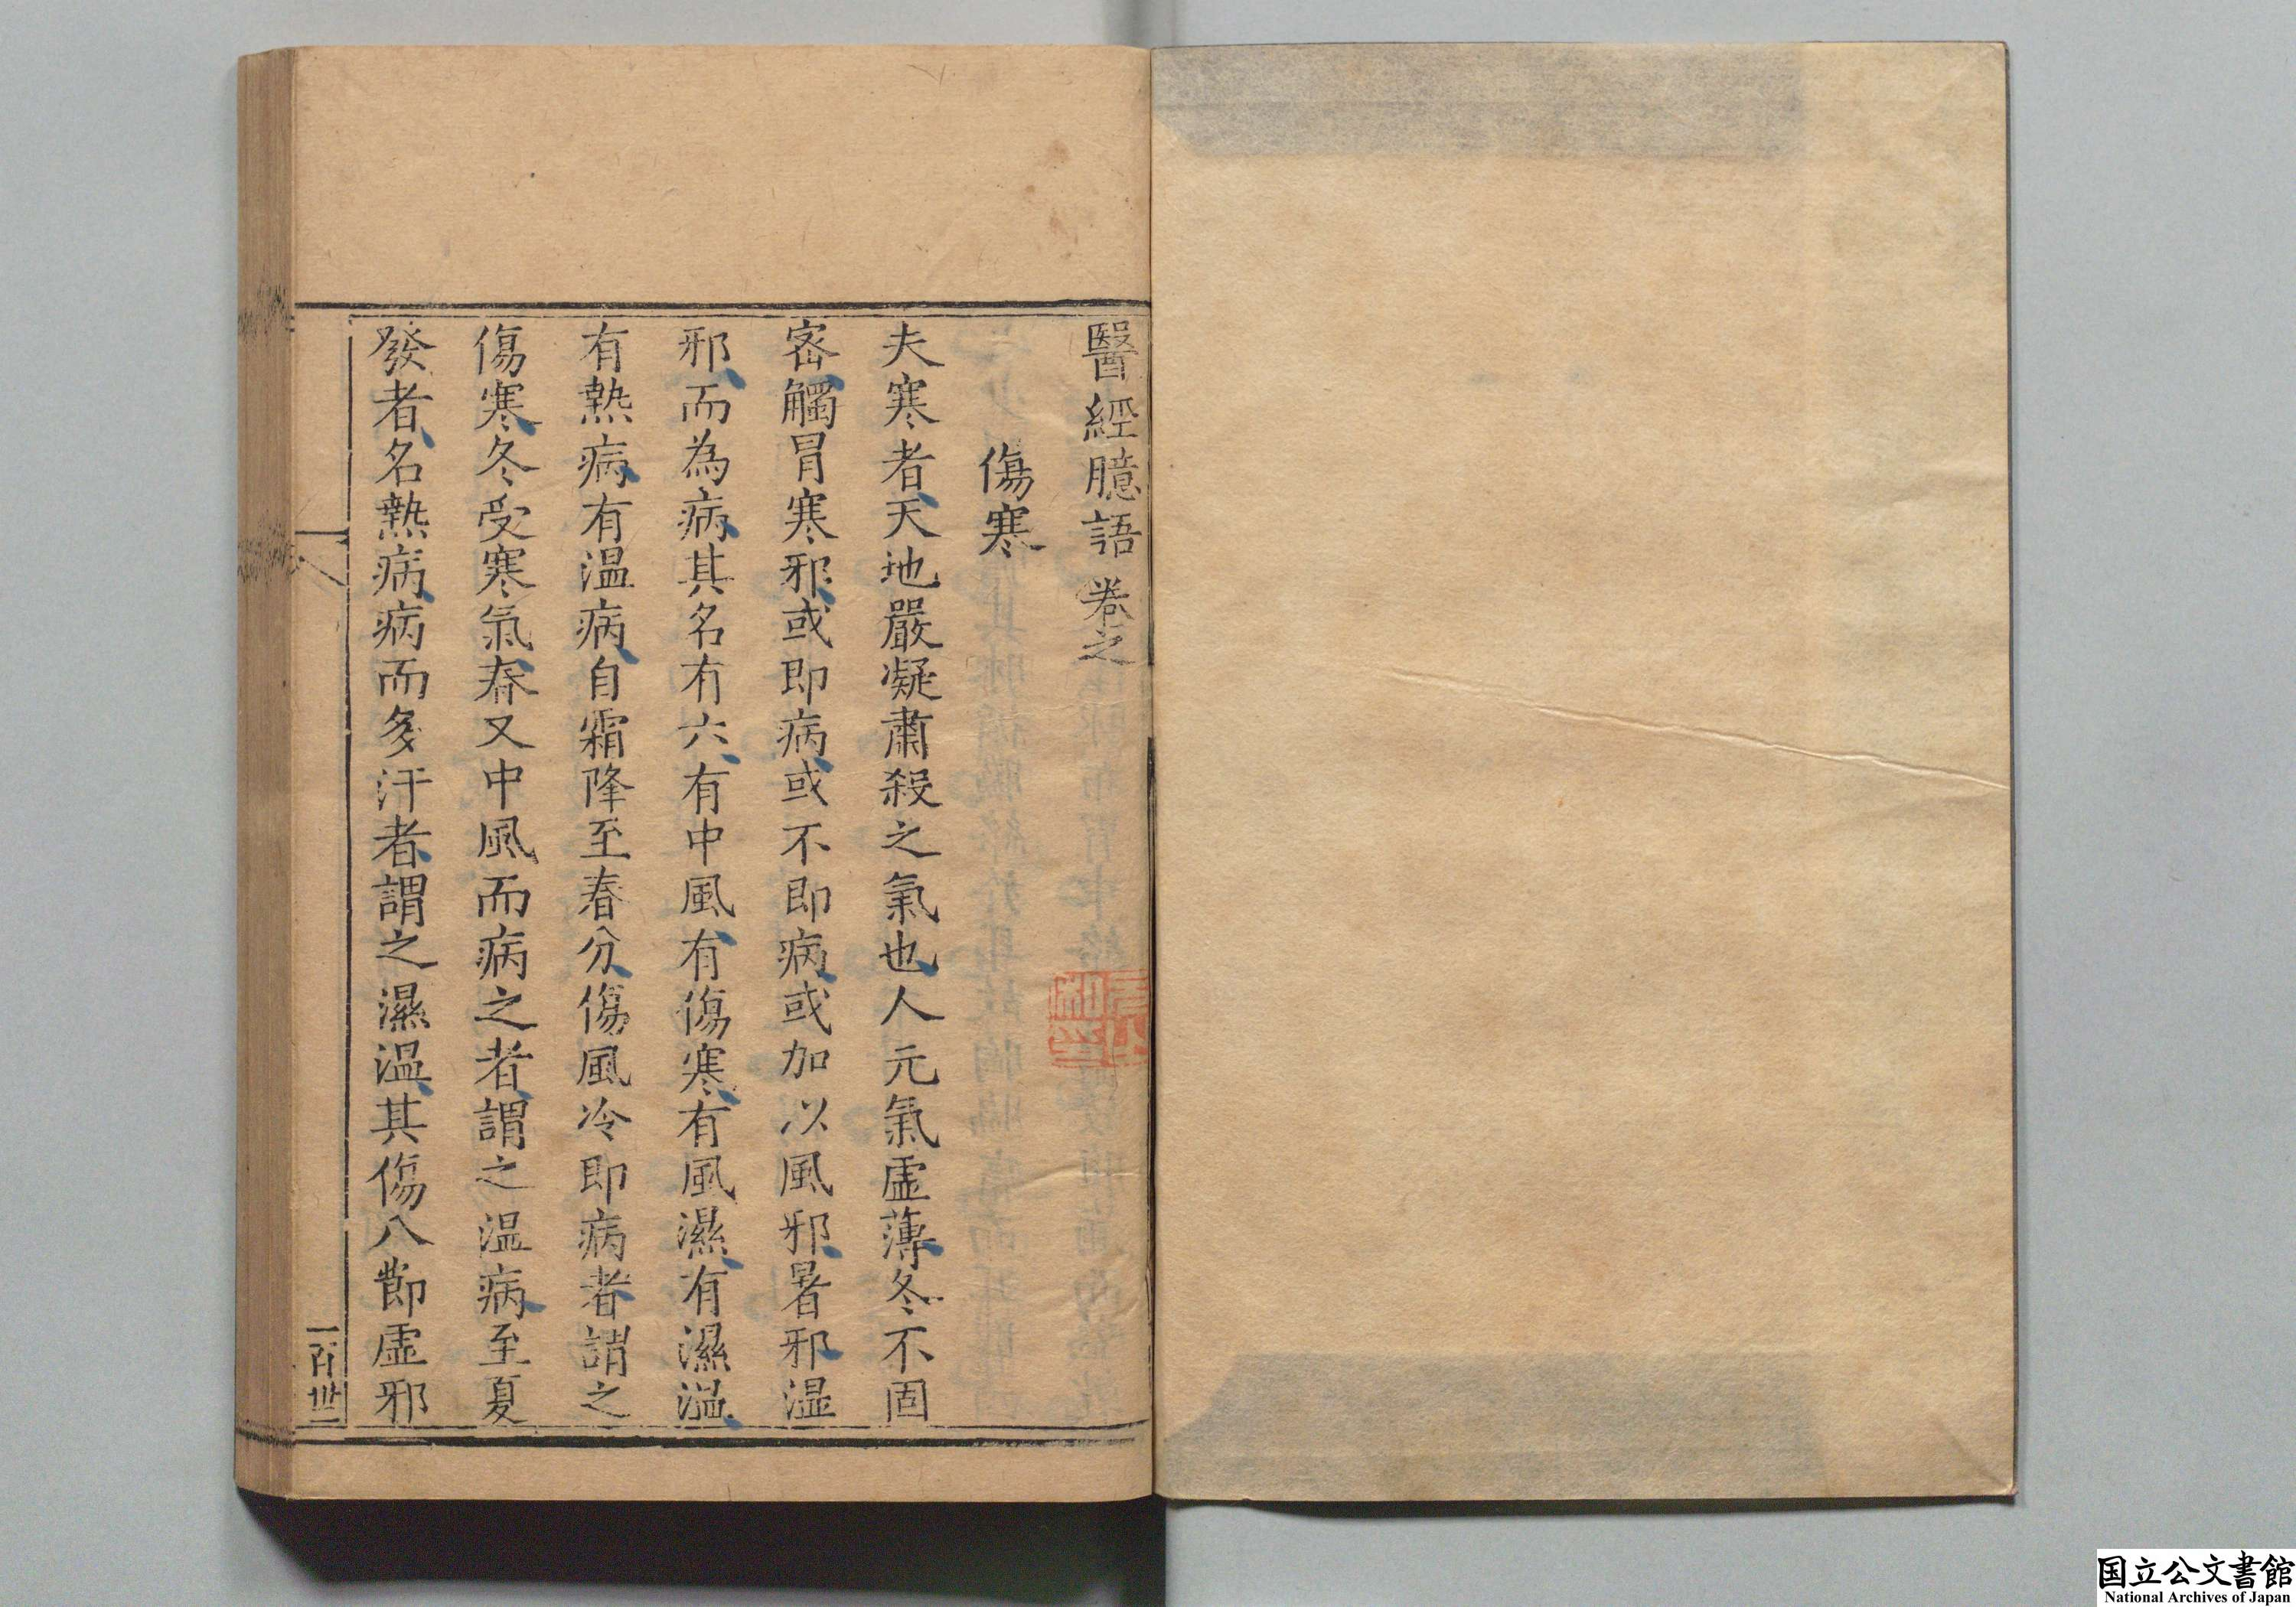 醫經臆語卷之
傷寒
夫寒者天地嚴凝肅殺之氣也人元氣虛薄冬不固
宻觸冒寒邪或即病或不即病或加以風邪暑邪湿
邪而為病其名有六有中風有傷寒有風濕有濕溫
有熱病有温病自霜降至春分傷風冷即病者謂之
傷寒冬受寒氣春又中風而病之者謂之温病至夏
發者名熱病病而多汗者謂之濕温其傷八節虛邪
国立公文書館
National Archives of Japan